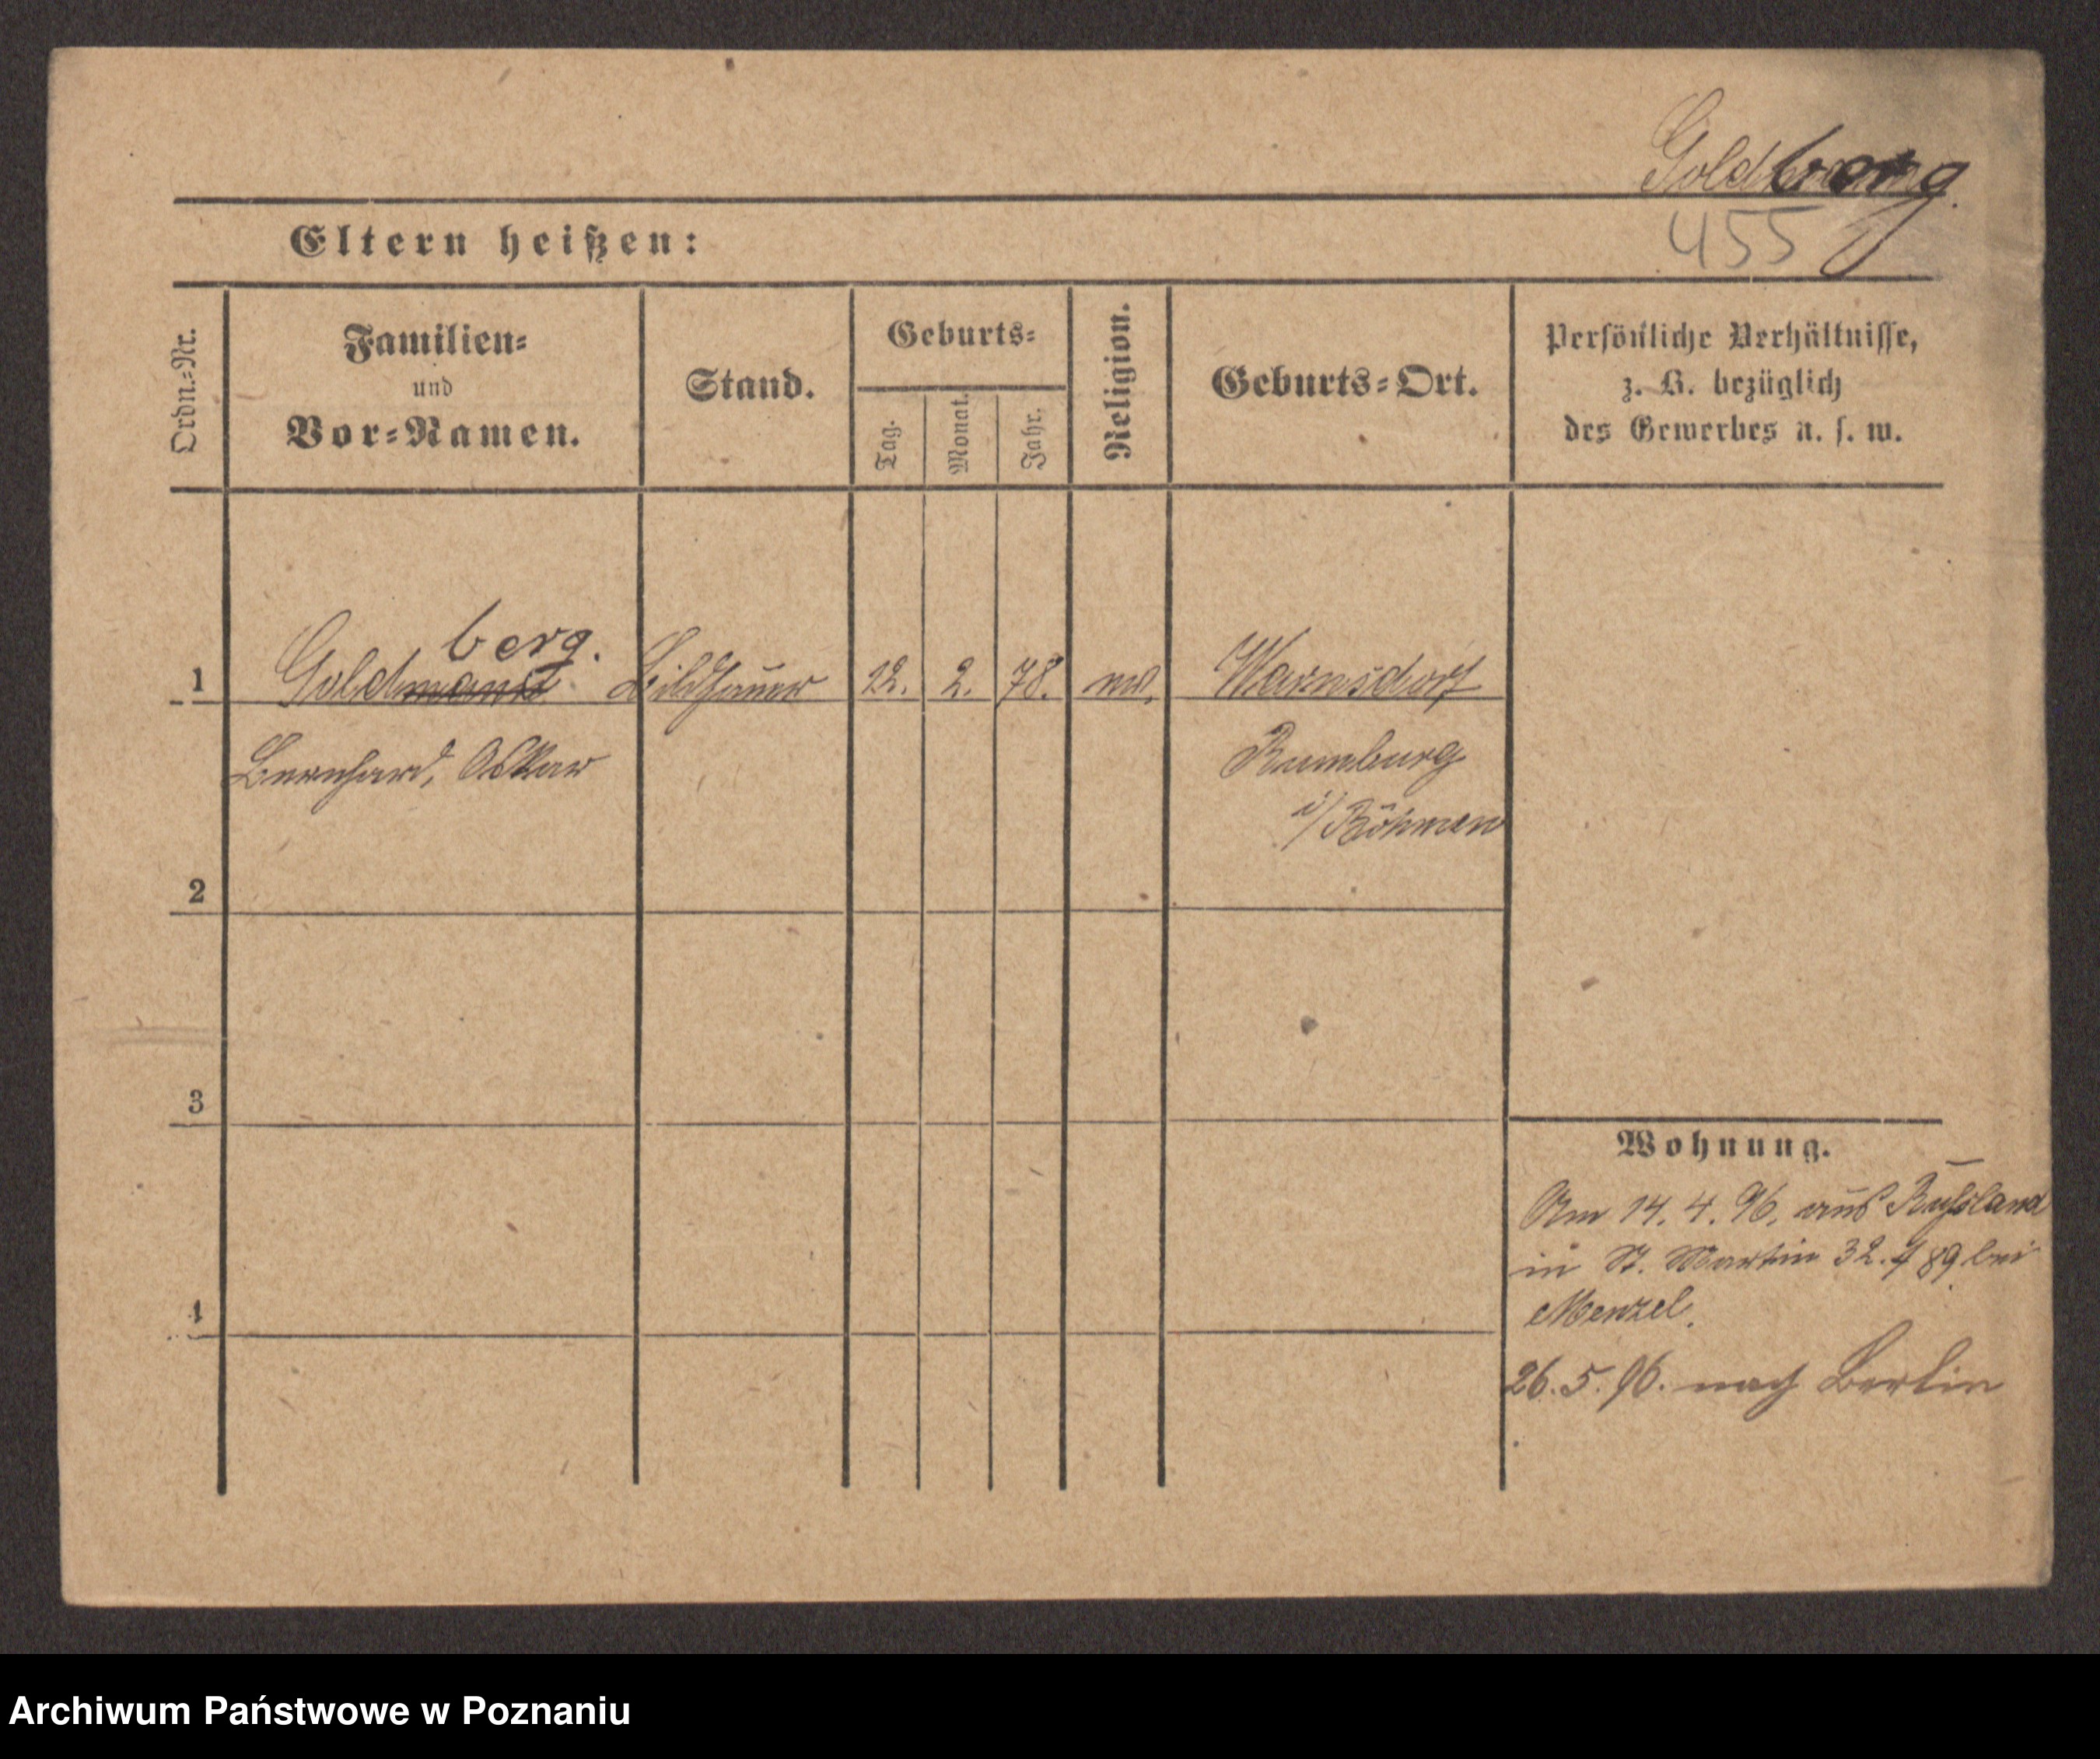 Goldberg
455
Eltern heißen:
Ordn.-Nr.
Familien-
und
Vor-Namen.
Stand.
Geburts-
Tag.
Monat.
Jahr.
Religion.
Geburts-Ort.
Persönliche Verhältnisse,
z. B. bezüglich
des Gewerbes u. s. w.
berg.
1 Goldmann Bildhauer 12. 2. 78. Warnsdorf
Bernhard, Oskar
Rumburg
i/Böhmen
2
3
4
Wohnung.
Am 14. 4. 96. aus Rußland
in St. Martin 32. 489 bei
Menzel.
26. 5. 96. nach Berlin
Archiwum Państwowe w Poznaniu